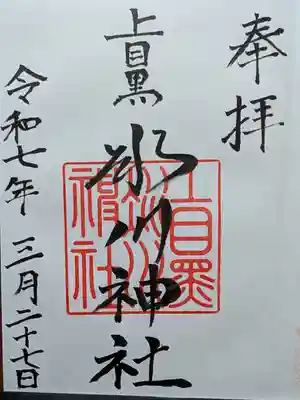 奉拝
上目黒
氷川神社
上目黒
氷川
神社
令和七年 三月二十七日